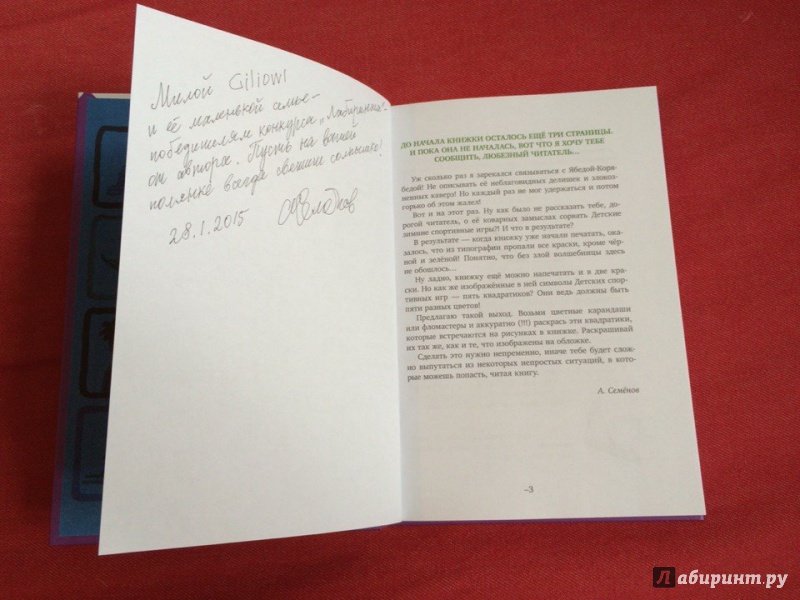 Милой Giliowl
и её маленькой семье –
победителям конкурса „Лабиринта"
от автора. Пусть на вашей
полянке всегда светит солнышко!
28.1.2015
ДО НАЧАЛА КНИЖКИ ОСТАЛОСЬ ЕЩЁ ТРИ СТРАНИЦЫ.
И ПОКА ОНА НЕ НАЧАЛАСЬ, ВОТ ЧТО Я ХОЧУ ТЕБЕ
СООБЩИТЬ, ЛЮБЕЗНЫЙ ЧИТАТЕЛЬ...
Уж сколько раз я зарекался связываться с Ябедой-Коря-
бедой! Не описывать её неблаговидных делишек и злокоз-
ненных каверз! Но каждый раз не мог удержаться и потом
горько об этом жалел!
Вот и на этот раз. Ну как было не рассказать тебе, до-
рогой читатель, о её коварных замыслах сорвать Детские
зимние спортивные игры?! И что в результате?
В результате — когда книжку уже начали печатать, ока-
залось, что из типографии пропали все краски, кроме чёр-
ной и зелёной! Понятно, что без злой волшебницы здесь
не обошлось...
Ну ладно, книжку ещё можно напечатать и в две кра-
ски. Но как же изображённые в ней символы Детских спор-
тивных игр — пять квадратиков? Они ведь должны быть
пяти разных цветов!
Предлагаю такой выход. Возьми цветные карандаши
или фломастеры и аккуратно (!!!) раскрась эти квадратики,
которые встречаются на рисунках в книжке. Раскрашивай
их так же, как и те, что изображены на обложке.
Сделать это нужно непременно, иначе тебе будет слож-
но выпутаться из некоторых непростых ситуаций, в кото-
рые можешь попасть, читая книгу.
А. Семёнов
–3
Лабиринт.ру